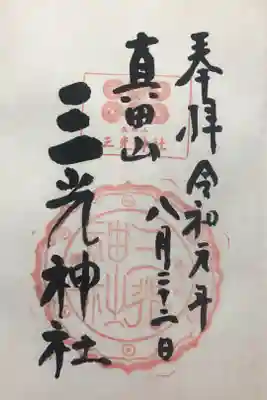 奉拝
令和元年
八月二十二日
真田山
三光神社
三光神社
三光神社